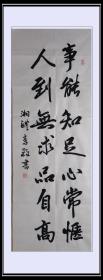 事能知足心常惬
人到無求品自高
湘潭
書